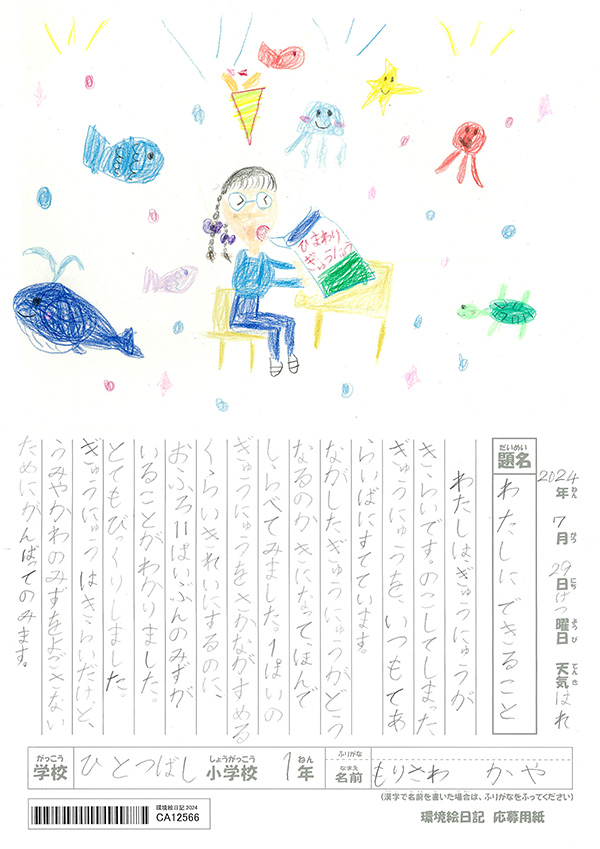 ひまわり
ぎゅうにゅう
2024年 7月 29日 げつ曜日 天気 はれ
ねん がつ にち ようび てんき
だいめい
題名
わたしに できること
わたしは、ぎゅうにゅうが
きらいです。のこしてしまった
ぎゅうにゅうを、いつもてあ
らいばにすてています。
ながしたぎゅうにゅうがどう
なるのか きになって、ほんで
しらべてみました。1ぱいの
ぎゅうにゅうをさかながすめる
くらいきれいにするのに、
おふろ11ぱいぶんのみずが
いることがわかりました。
とてもびっくりしました。
ぎゅうにゅうはきらいだけど、
うみやかわのみずをよごさない
ためにがんばってのみます。
がっこう しょうがっこう ねん ふりがな
学校 ひとつばし 小学校 1年
なまえ
名前 もりさわ かや
(漢字で名前を書いた場合は、ふりがなをふってください)
環境絵日記 2024
CA12566
環境絵日記 応募用紙